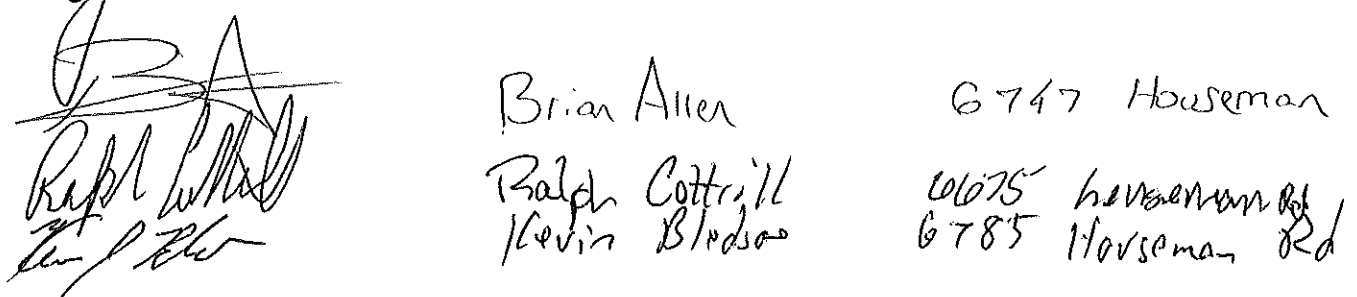 Brian Allen 6747 Houseman
Ralph Cottrill Ralph Cottrill 6675 Houseman Rd
Kevin Bledsoe 6785 Houseman Rd